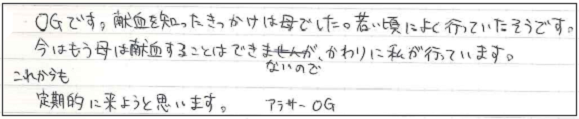 OGです。献血を知ったきっかけは母でした。若い頃によく行っていたそうです。
今はもう母は献血することはできませんが、かわりに私が行っています。
ないので
これからも
定期的に来ようと思います。 アラサーOG